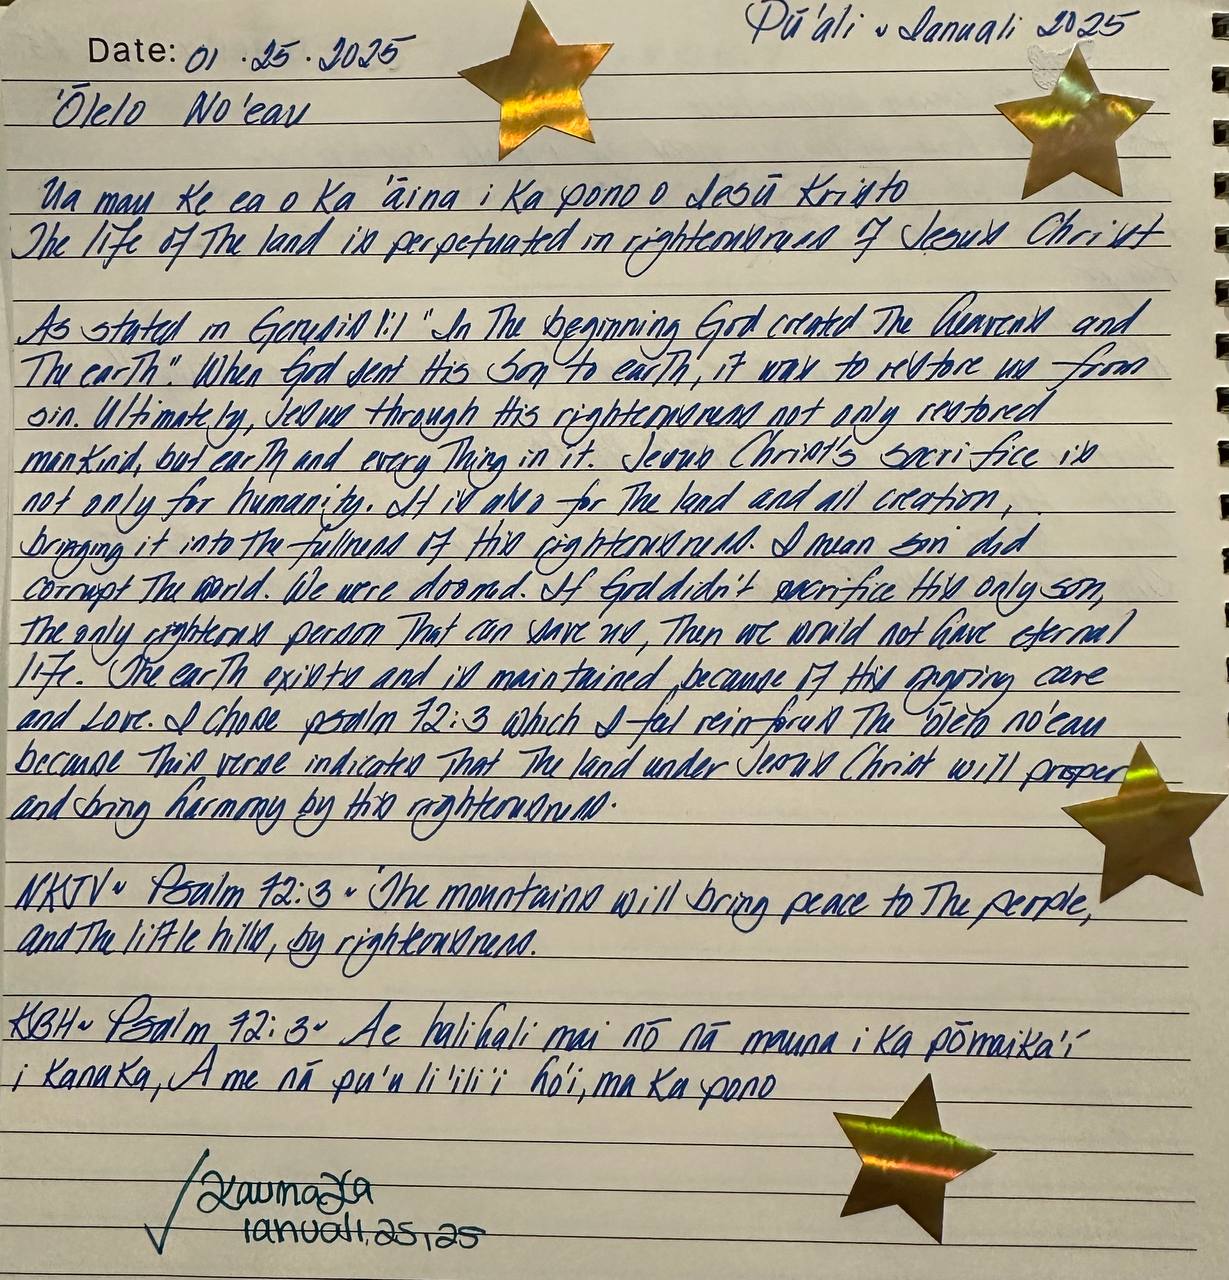 Pū'ali ~ Ianuali 2025
Date: 01.25.2025
'Ōlelo No'eau
Ua mau ke ea o ka 'āina i ka pono o Iesū Kristo
The life of the land is perpetuated in righteousness of Jesus Christ
As stated in Genesis 1:1 "In the beginning God created the heavens and
the earth". When God sent His Son to earth, it was to restore us from
sin. Ultimately, Jesus through His righteousness not only restored
mankind, but earth and everything in it. Jesus Christ's sacrifice is
not only for humanity. It is also for the land and all creation,
bringing it into the fullness of His righteousness. I mean sin did
corrupt the world. We were doomed. If God didn't sacrifice His only son,
the only righteous person that can save us, then we would not have eternal
life. The earth exists and is maintained, because of His ongoing care
and love. I chose psalm 72:3 which I feel reinforces the 'ōlelo no'eau
because this verse indicates that the land under Jesus Christ will prosper
and bring harmony by His righteousness.
NKJV ~ Psalm 72:3 ~ The mountains will bring peace to the people,
and the little hills, by righteousness.
KBH ~ Psalm 72:3 ~ Ae halihali mai nō nā mauna i ka pōmaika'i
i kanaka, A me nā pu'u li'ili'i ho'i, ma ka pono
KaumaKa
Ianuali, 25, 25